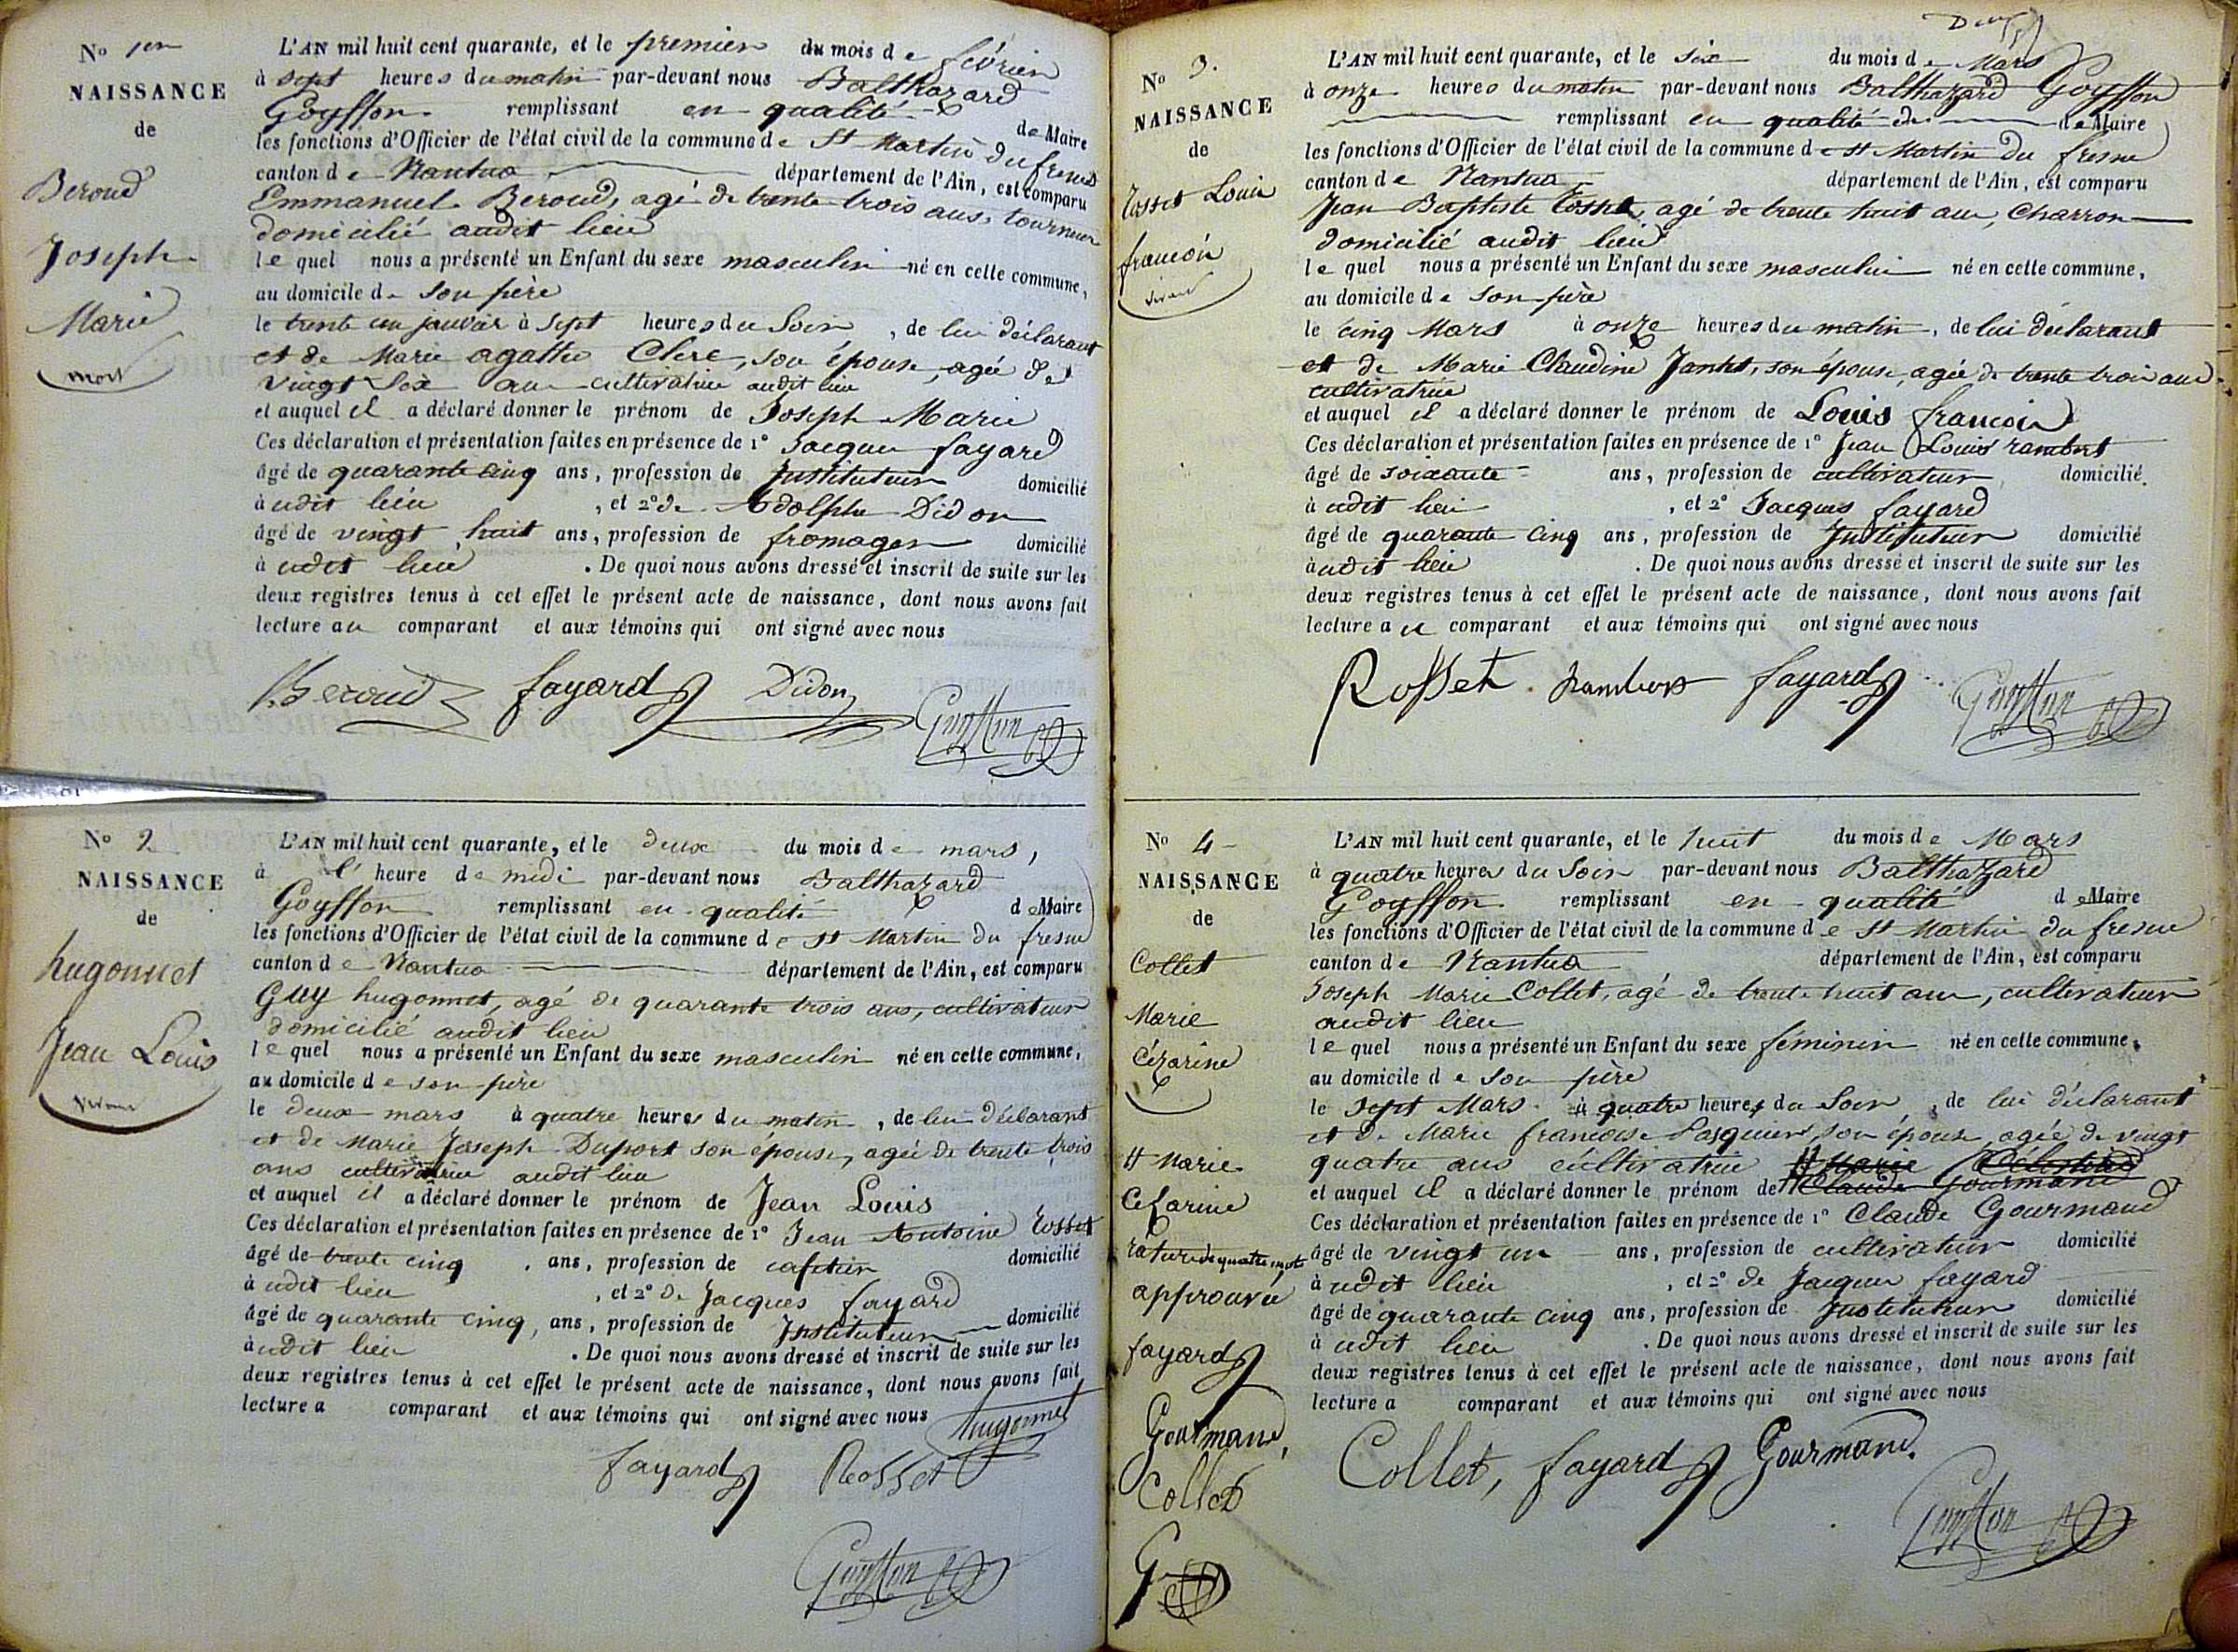 No 1er
NAISSANCE
de
Beroud
Joseph
Marie
mort
L'AN mil huit cent quarante, et le premier du mois de février
à sept heures du matin par-devant nous Balthazard
Goyffon remplissant en qualité de Maire
les fonctions d'Officier de l'état civil de la commune de St Martin du fresne
canton de Nantua département de l'Ain, est comparu
Emmanuel Beroud, agé de trente trois ans, tourneur
domicilié audit lieu
lequel nous a présenté un Enfant du sexe masculin né en cette commune,
au domicile de son père
le trente un janvier à sept heures du soir, de lui déclarant
et de Marie agathe Clerc, son épouse, agée de
vingt six ans cultivatrice audit lieu
et auquel il a déclaré donner le prénom de Joseph Marie
Ces déclaration et présentation faites en présence de 1° Jacques fayard
âgé de quarante cinq ans, profession de Instituteur domicilié
à udit lieu, et 2° de Adolphe Didon
âgé de vingt huit ans, profession de fromager domicilié
à udit lieu. De quoi nous avons dressé et inscrit de suite sur les
deux registres tenus à cet effet le présent acte de naissance, dont nous avons fait
lecture au comparant et aux témoins qui ont signé avec nous
Beroud fayard Didon
Goyffon
No 2
NAISSANCE
de
hugonnet
Jean Louis
vivant
L'AN mil huit cent quarante, et le deux du mois de mars,
à l' heure de midi par-devant nous Balthazard
Goyffon remplissant en qualité de Maire
les fonctions d'Officier de l'état civil de la commune de St Martin du fresne
canton de Nantua département de l'Ain, est comparu
Guy hugonnet, agé de quarante trois ans, cultivateur
domicilié audit lieu
lequel nous a présenté un Enfant du sexe masculin né en cette commune,
au domicile de son père
le deux mars à quatre heures du matin, de lui déclarant
et de Marie Joseph Duport son épouse, agée de trente trois
ans cultivatrice audit lieu
et auquel il a déclaré donner le prénom de Jean Louis
Ces déclaration et présentation faites en présence de 1° Jean Antoine Rosset
âgé de trente cinq ans, profession de cafetier domicilié
à udit lieu, et 2° de Jacques fayard
âgé de quarante cinq, ans, profession de Instituteur domicilié
à udit lieu. De quoi nous avons dressé et inscrit de suite sur les
deux registres tenus à cet effet le présent acte de naissance, dont nous avons fait
lecture a comparant et aux témoins qui ont signé avec nous hugonnet
fayard Rosset
Goyffon
No 3.
NAISSANCE
de
Rosset Louis
francois
vivant
L'AN mil huit cent quarante, et le six du mois de Mars
à onze heures du matin par-devant nous Balthazard Goyffon
remplissant en qualité de Maire
les fonctions d'Officier de l'état civil de la commune de St Martin du fresne
canton de Nantua département de l'Ain, est comparu
Jean Baptiste Rosset, agé de trente huit ans, Charron
domicilié audit lieu
lequel nous a présenté un Enfant du sexe masculin né en cette commune,
au domicile de son père
le cinq Mars à onze heures du matin, de lui déclarant
et de Marie Claudine Jantet, son épouse, agée de trente trois ans
cultivatrice
et auquel il a déclaré donner le prénom de Louis francois
Ces déclaration et présentation faites en présence de 1° Jean Louis rambert
âgé de soixante ans, profession de cultivateur domicilié
à udit lieu, et 2° Jacques fayard
âgé de quarante cinq ans, profession de Instituteur domicilié
à udit lieu. De quoi nous avons dressé et inscrit de suite sur les
deux registres tenus à cet effet le présent acte de naissance, dont nous avons fait
lecture au comparant et aux témoins qui ont signé avec nous
Rosset rambert fayard
Goyffon
No 4
NAISSANCE
de
Collet
Marie
Cézarine
# Marie
Cesarine
rature de quatre mots
approuvée
fayard
Gourmand,
Collet
G
L'AN mil huit cent quarante, et le huit du mois de Mars
à quatre heures du soir par-devant nous Balthazard
Goyffon remplissant en qualité de Maire
les fonctions d'Officier de l'état civil de la commune de St Martin du fresne
canton de Nantua département de l'Ain, est comparu
Joseph Marie Collet, agé de trente huit ans, cultivateur
audit lieu
lequel nous a présenté un Enfant du sexe féminin né en cette commune,
au domicile de son père
le sept Mars à quatre heures du soir, de lui déclarant
et de Marie francoise Pasquier, son épouse, agée de vingt
quatre ans cultivatrice # Marie
et auquel il a déclaré donner le prénom de # Claude Gourmand
Ces déclaration et présentation faites en présence de 1° Claude Gourmand
âgé de vingt un ans, profession de cultivateur domicilié
à udit lieu, et 2° de Jacques fayard
âgé de quarante cinq ans, profession de Instituteur domicilié
à udit lieu. De quoi nous avons dressé et inscrit de suite sur les
deux registres tenus à cet effet le présent acte de naissance, dont nous avons fait
lecture a comparant et aux témoins qui ont signé avec nous
Collet, fayard Gourmand.
Goyffon